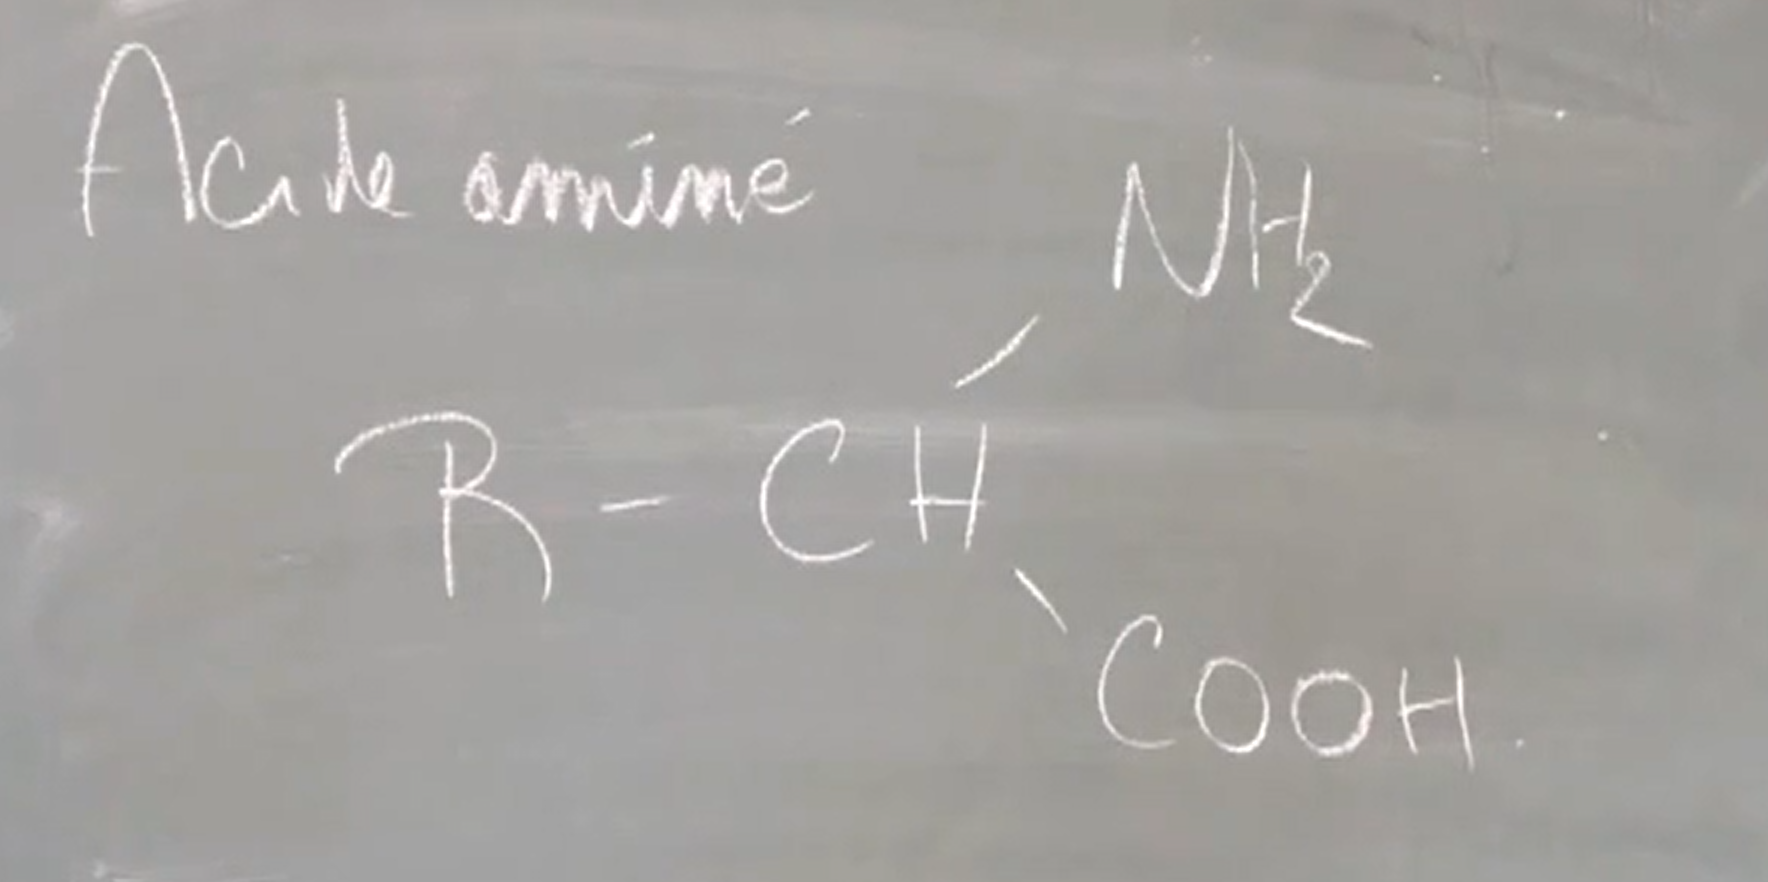 Acide aminé
NH2
R - CH
COOH.